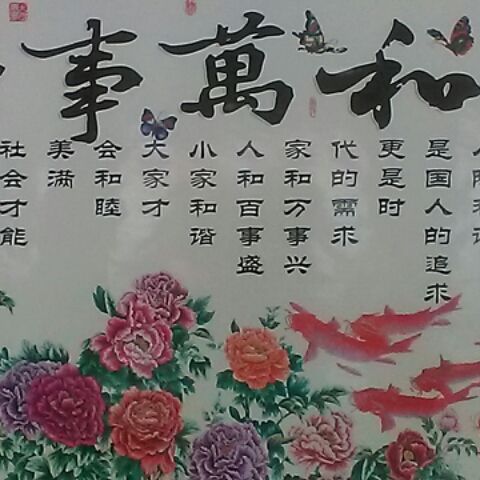 和萬事
是国人的追求
更是时
代的需求
家和万事兴
人和百事盛
小家和谐
大家才
会和睦
美满
社会才能